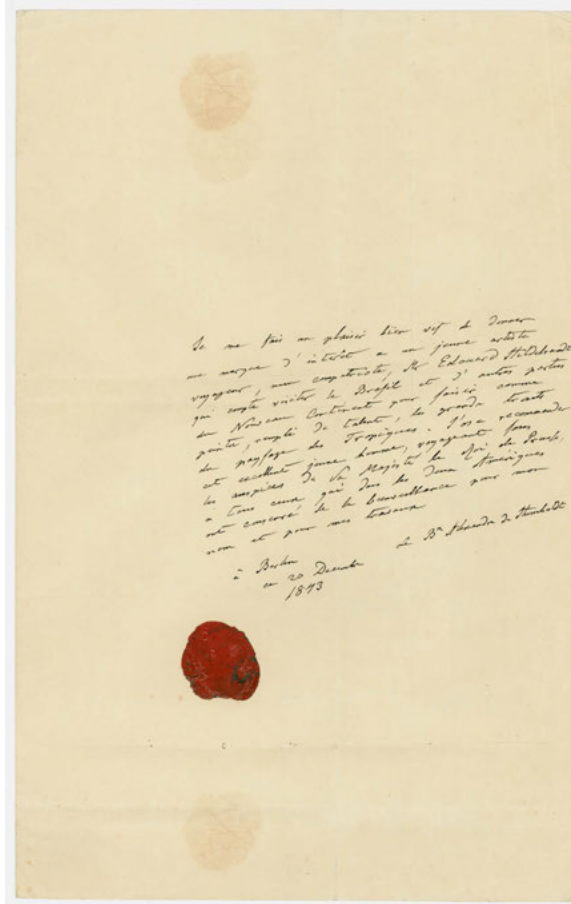 Je me fais un plaisir bien vif de donner
une marque d'intérêt a un jeune artiste
voyageur, mon compatriote, Mr Edouard Hildebrandt
qui compte visiter le Brésil et d'autres parties
du Nouveau Continent pour saisir comme
peintre, rempli de talent, les grands traits
du paysage des Tropiques. J'ose recommander
cet excellent jeune homme, voyageant sous
les auspices de Sa Majesté le Roi de Prusse,
à tous ceux qui dans les deux Amériques
ont conservé de la bienveillance pour mon
nom et pour mes travaux
à Berlin
ce 20 Decembre
1843
le Bn Alexandre de Humboldt